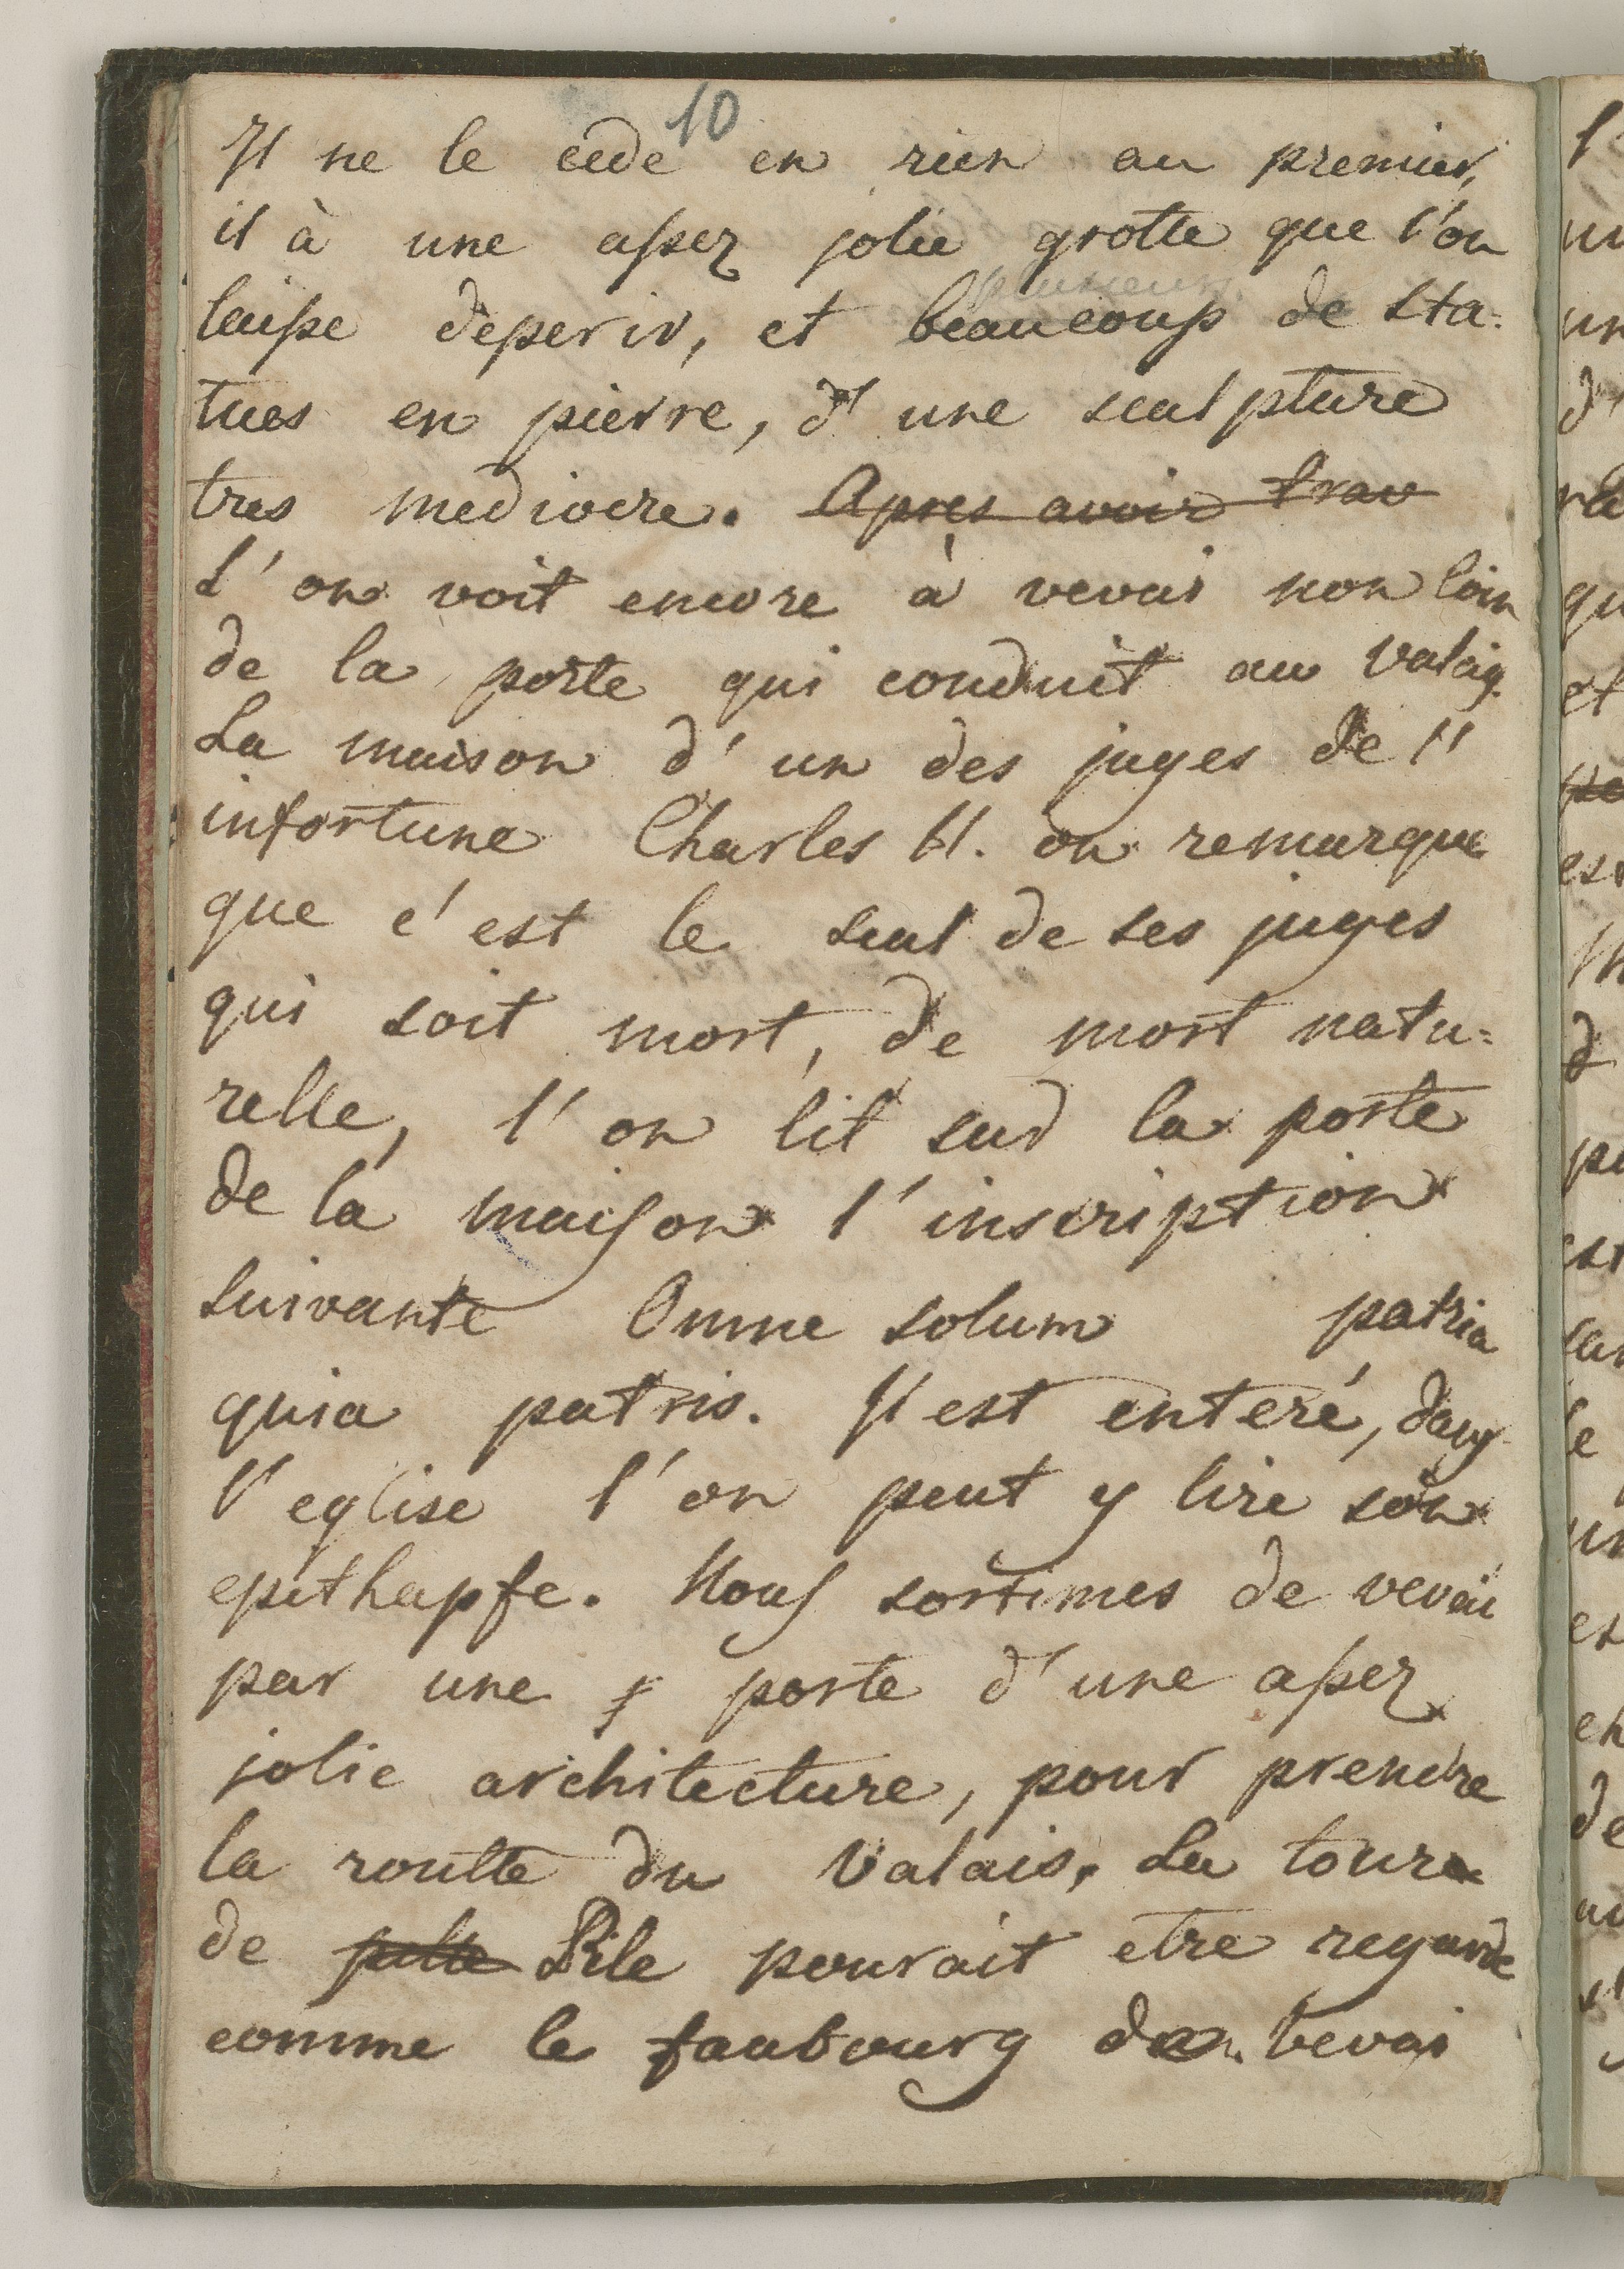 10
Il ne le cede en rien au premier,
il à une assez jolie grotte que l'on
plusieurs
laisse deperir, et beaucoup de sta=
tues en pierre, d'une sculpture
tres mediocre. Apres avoir trav
L'on voit encore à vevai non loin
de la porte qui conduit au Valais.
La maison d'un des juges de l'
infortune Charles II. on remarque
que c'est le seul de ses juges
qui soit mort, de mort natu=
relle, l'on lit sur la porte
de la maison l'inscription
suivante Omne solum patria
quia patris. Il est enteré, dans
l'eglise l'on peut y lire son
epithapfe. Nous sortimes de vevai
par une porte d'une assez
jolie architecture, pour prendre
la routte du Valais. La tour
de Pile pourait etre regarde
comme le faubourg de vevai